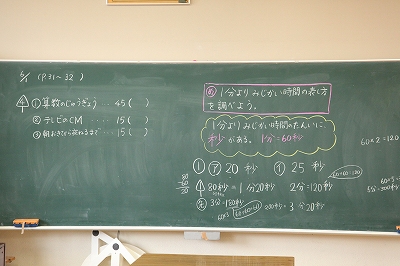 (P.31~32)
①算数のじゅうぎょう‥45( )
②テレビのCM ‥‥15( )
③朝おきてから夜ねるまで‥15( )
め 1分よりみじかい時間の表し方
を調べよう。
1分よりみじかい時間のたんいに、
秒がある。1分=60秒
① ㋐ 20秒 ㋑ 25秒
80秒=1分20秒 2分=120秒
60+60=120
80
60
20
3分=180秒
200秒=3分20秒
60×3
60×2=120